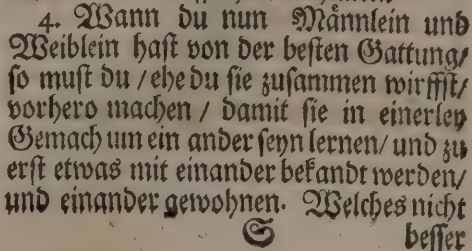 4. Wann du nun Männlein und
Weiblein hast von der besten Gattung/
so must du / ehe du sie zusammen wirffst/
vorhero machen / damit sie in einerley
Gemach um ein ander seyn lernen/ und zu
erst etwas mit einander bekandt werden/
und einander gewohnen. Welches nicht
S besser